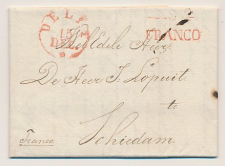 DELFT
15
DEC
FRANCO
Weledele Heer
De Heer J. Lopuit
te
Schiedam
Franco